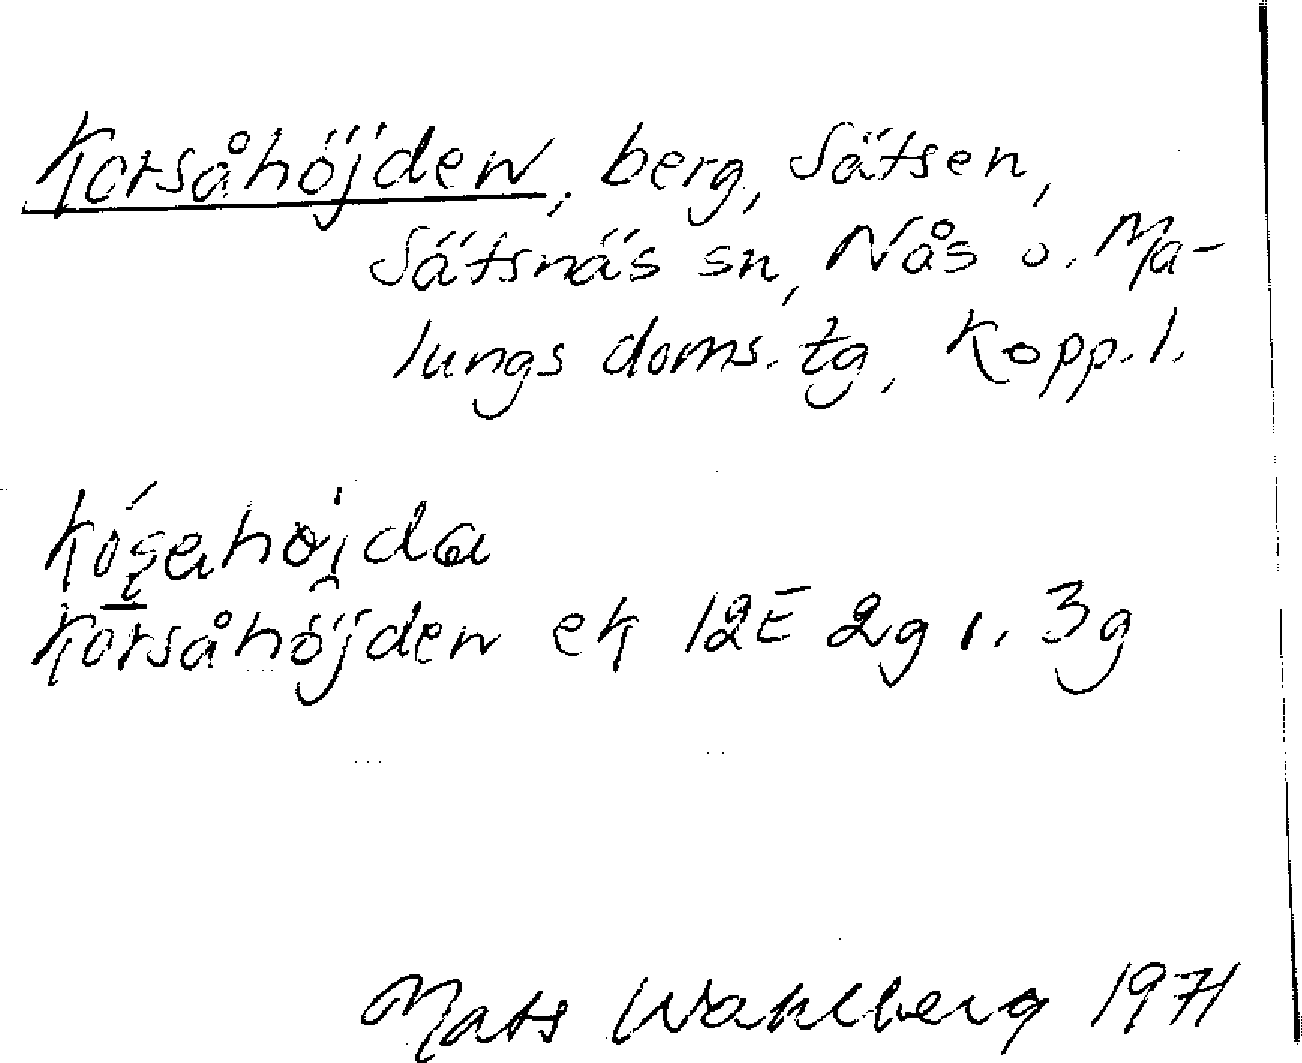 Korsåhöjden, berg, Sätsen,
Sätsnäs sn, Nås o. Ma-
lungs doms. tg, Kopp. l.
Korsåhöjden ek 12E 2g i. 3g
Mats Wahlberg 1971